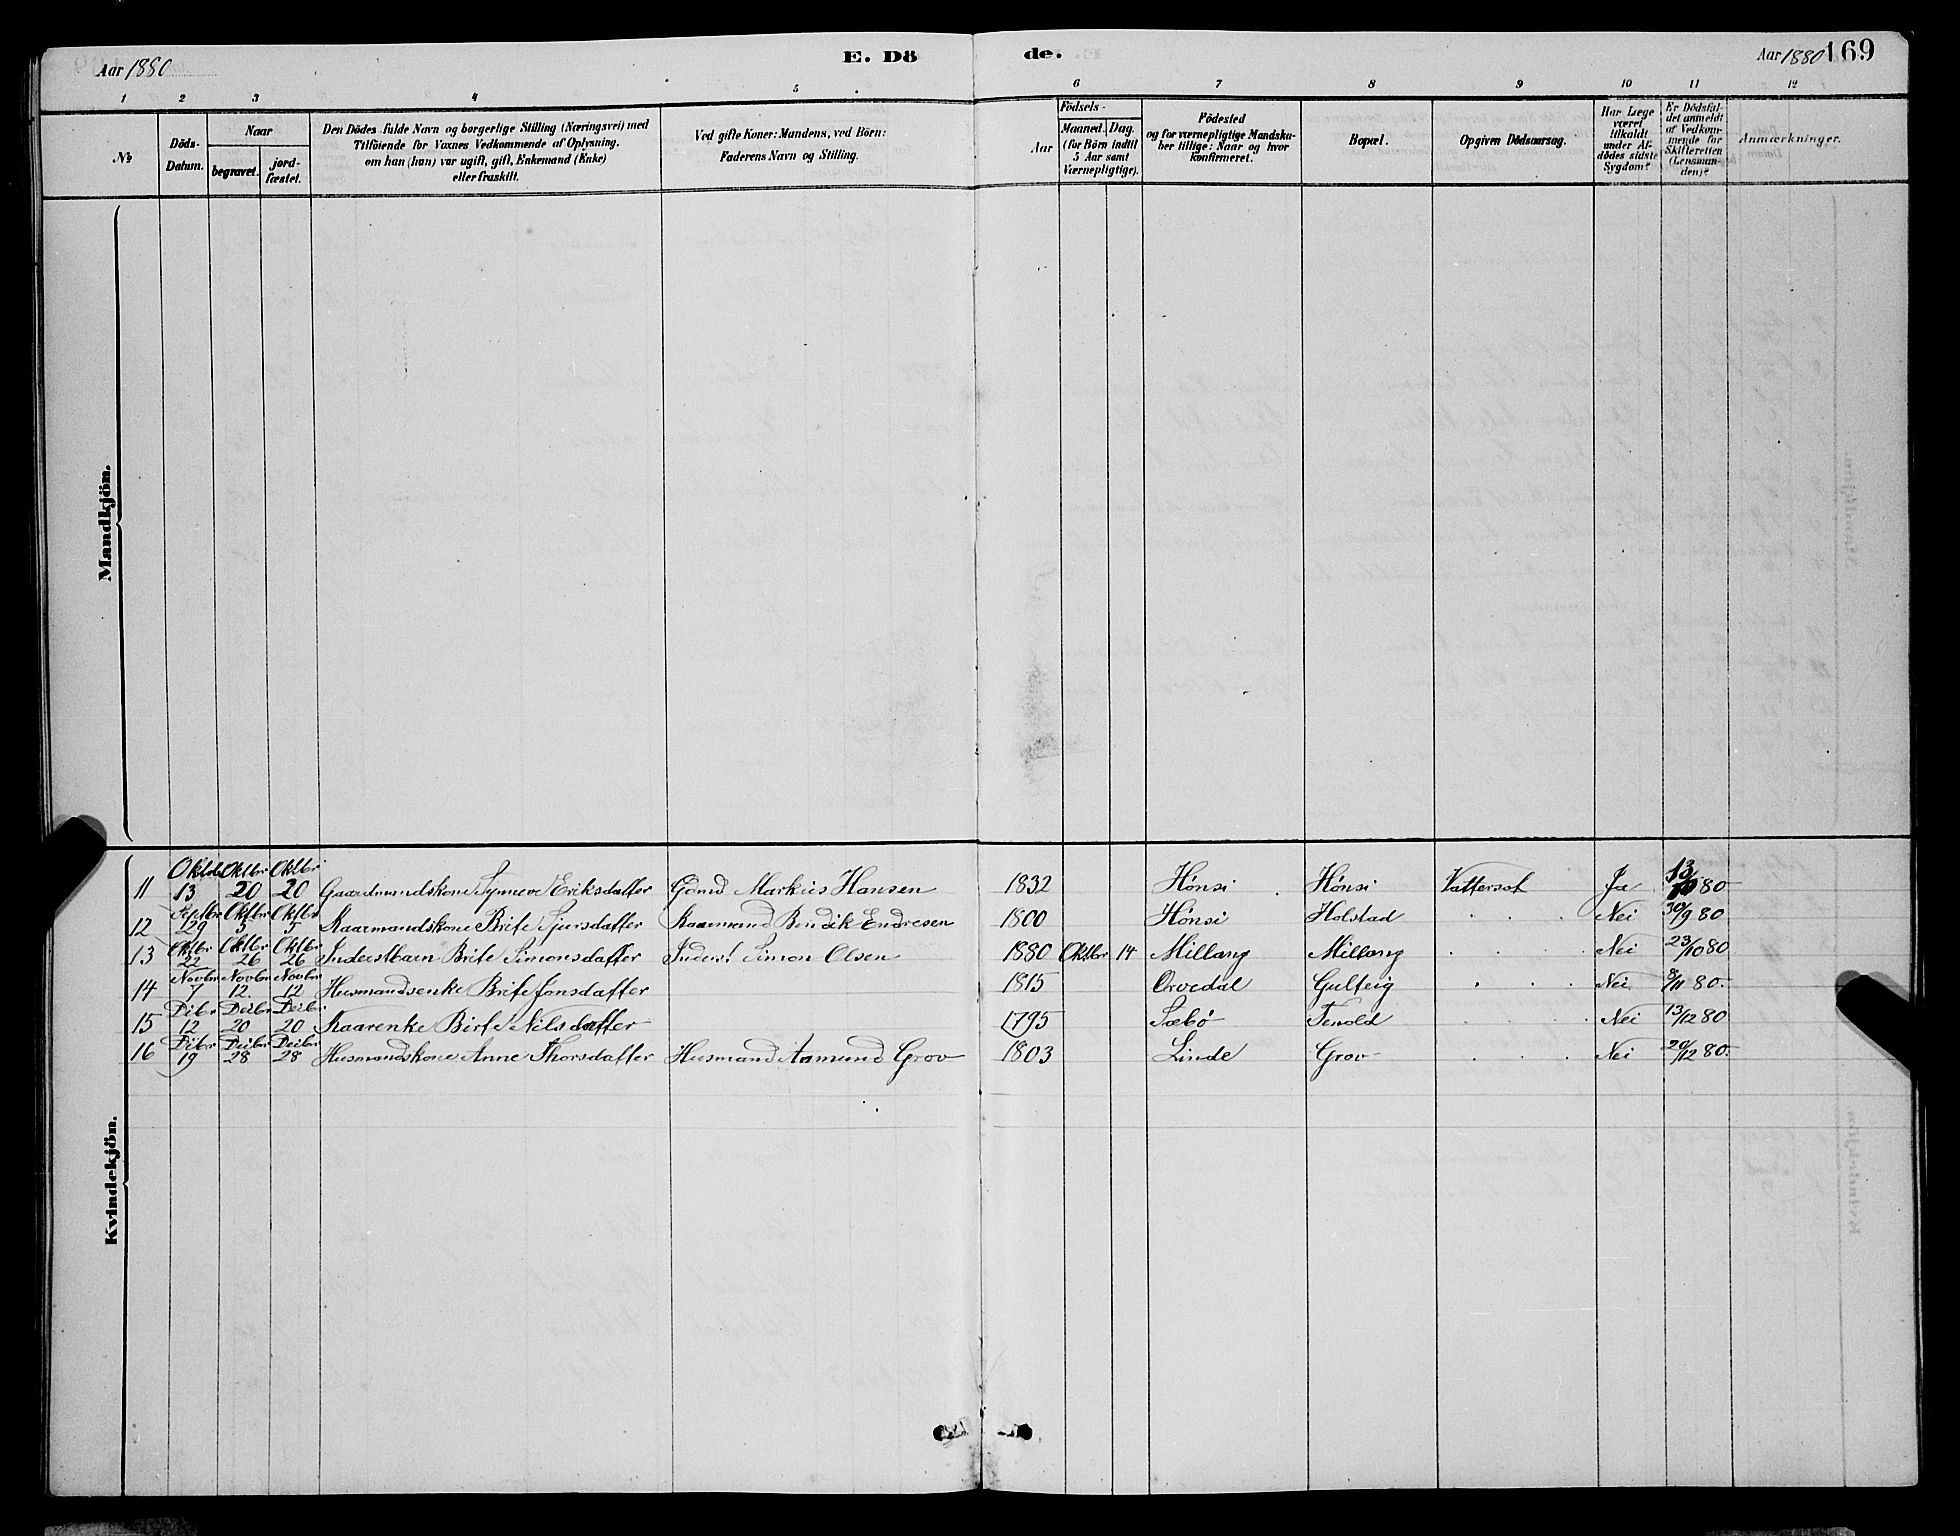 Aar 1880
E. Dö
de.
Aar 1880
169
1 2 3 4 5 6 7 8 9 10 11 12
№
Döds-Datum.
Naar
begravet.
jord-fæstet.
Den Dödes fulde Navn og borgerlige Stilling (Næringsvei) med
Tilföiende for Voxnes Vedkommende af Oplysning,
om han (hun) var ugift, gift, Enkemand (Enke)
eller fraskilt.
Ved gifte Koner: Mandens, ved Börn:
Faderens Navn og Stilling.
Födsels-
Aar
Maaned.
Dag.
(for Börn indtil
5 Aar samt
Værnepligtige).
Födested
og for værnepligtige Mandska-
ber tillige: Naar og hvor
konfirmeret.
Bopæl.
Opgiven Dödsaarsag.
Har Læge
været
tilkaldt
under Af-
dödes sidste
Sygdom?
Er Dödsfal-
det anmeldt
af Vedkom-
mende for
Skifteretten
(Lensman-
den)?
Anmærkninger.
Mandkjön.
Kvindekjön.
11 Oktbr 13 Oktbr 20 Oktbr 20 Gaardmandskone Synneve Eriksdatter Gdmd Markus Hansen 1832 Hønsi Hønsi Vattersot Ja 13/10 80
12 Septbr 29 Oktbr 5 Oktbr 5 Kaarmandskone Brite Sjursdatter Kaarmand Bendik Endresen 1800 Hønsi Holstad Nei 30/9 80
13 Oktbr 22 Oktbr 26 Oktbr 26 Inderstbarn Brite Simonsdatter Inderst Simon Olsen 1880 Oktbr 14 Millang Millang Nei 23/10 80
14 Novbr 7 Novbr 12 Novbr 12 Husmandsenke Brite Jonsdatter 1815 Orvedal Gulteig Nei 8/11 80
15 Dibr 12 Deibr 20 Deibr 20 Kaarenke Birte Nilsdatter 1795 Sæbø Tenold Nei 13/12 80
16 Dibr 19 Deibr 28 Deibr 28 Husmandskone Anne Thorsdatter Husmand Aamund Grov 1803 Linde Grov Nei 20/12 80